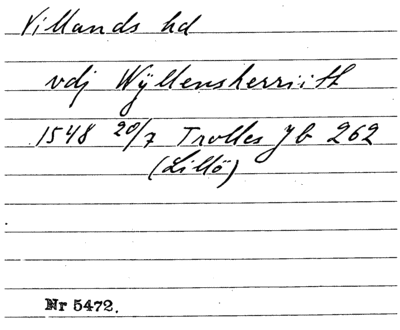 Villands hd
vdj Wÿllensherriitt
1548 20/7 Trolles Jb 262
(Lillö)
Nr 5472.